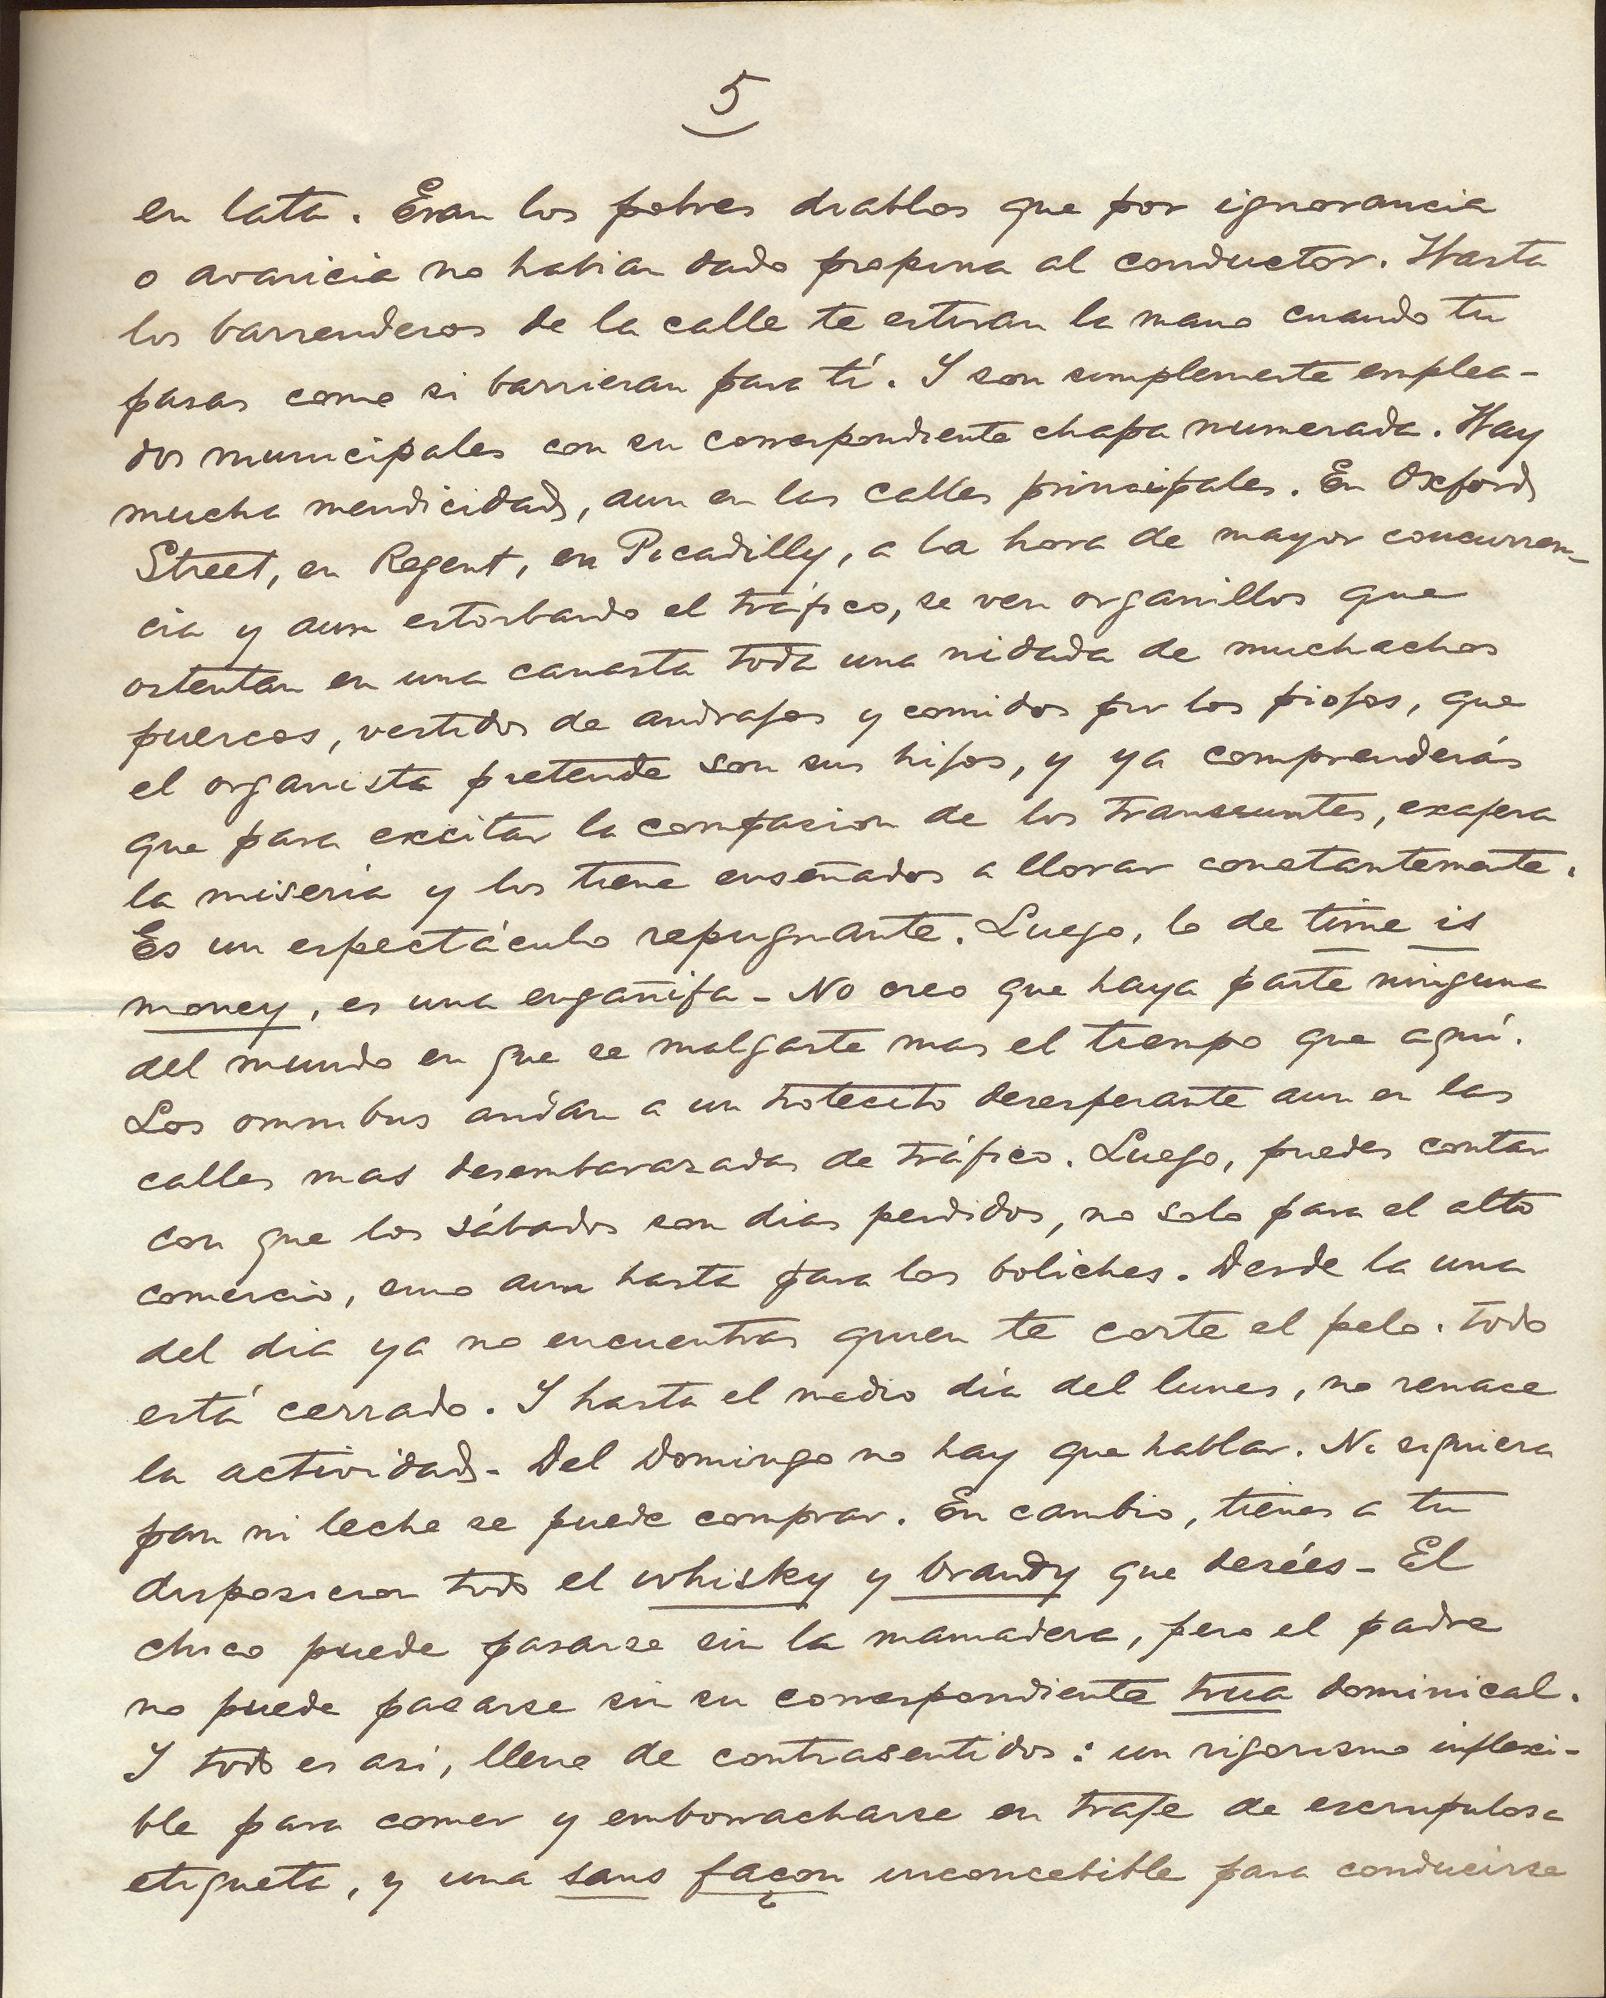 5
en lata. Eran los pobres diablos que por ignorancia
o avaricia no habian dado propina al conductor. Hasta
los barrenderos de la calle te estiran la mano cuando tu
pasas como si barrieran para tí. I son simplemente emplea-
dos municipales con su correspondiente chapa numerada. Hay
mucha mendicidad, aun en las calles principales. En Oxford
Street, en Regent, en Picadilly, a la hora de mayor concurren-
cia y aun estorbando el tráfico, se ven organillos que
ostentan en una canasta toda una nidada de muchachos
puercos, vestidos de andrajos y comidos por los piojos, que
el organista pretende son sus hijos, y ya comprenderás
que para excitar la compasion de los transeuntes, exajera
la miseria y los tiene enseñados a llorar constantemente.
Es un espectáculo repugnante. Luego, lo de time is
money, es una engañifa - No creo que haya parte ninguna
del mundo en que se malgaste mas el tiempo que aquí.
Los omnibus andan a un trotecito desesperante aun en las
calles mas desembarazadas de tráfico. Luego, puedes contar
con que los sábados son dias perdidos, no solo para el alto
comercio, sino aun hasta para los boliches. Desde la una
del dia ya no encuentras quien te corte el pelo. Todo
está cerrado. I hasta el medio dia del lunes, no renace
la actividad - Del Domingo no hay que hablar. Ni siquiera
pan ni leche se puede comprar. En cambio, tienes a tu
disposicion todo el whisky y brandy que deséés - El
chico puede pasarse sin la mamadera, pero el padre
no puede pasarse sin su correspondiente trua dominical.
I todo es asi, lleno de contrasentidos: un rigorismo inflexi-
ble para comer y emborracharse en traje de escrupulosa
etiqueta, y una sans façon inconcebible para conducirse